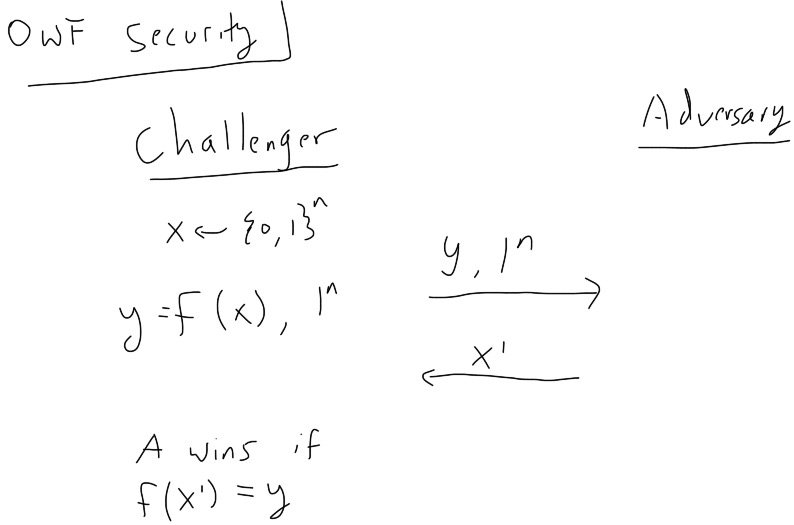 OWF Security
Challenger
Adversary
x ← {0,1}ⁿ
y, 1ⁿ
y = f(x), 1ⁿ
x'
A wins if
f(x') = y